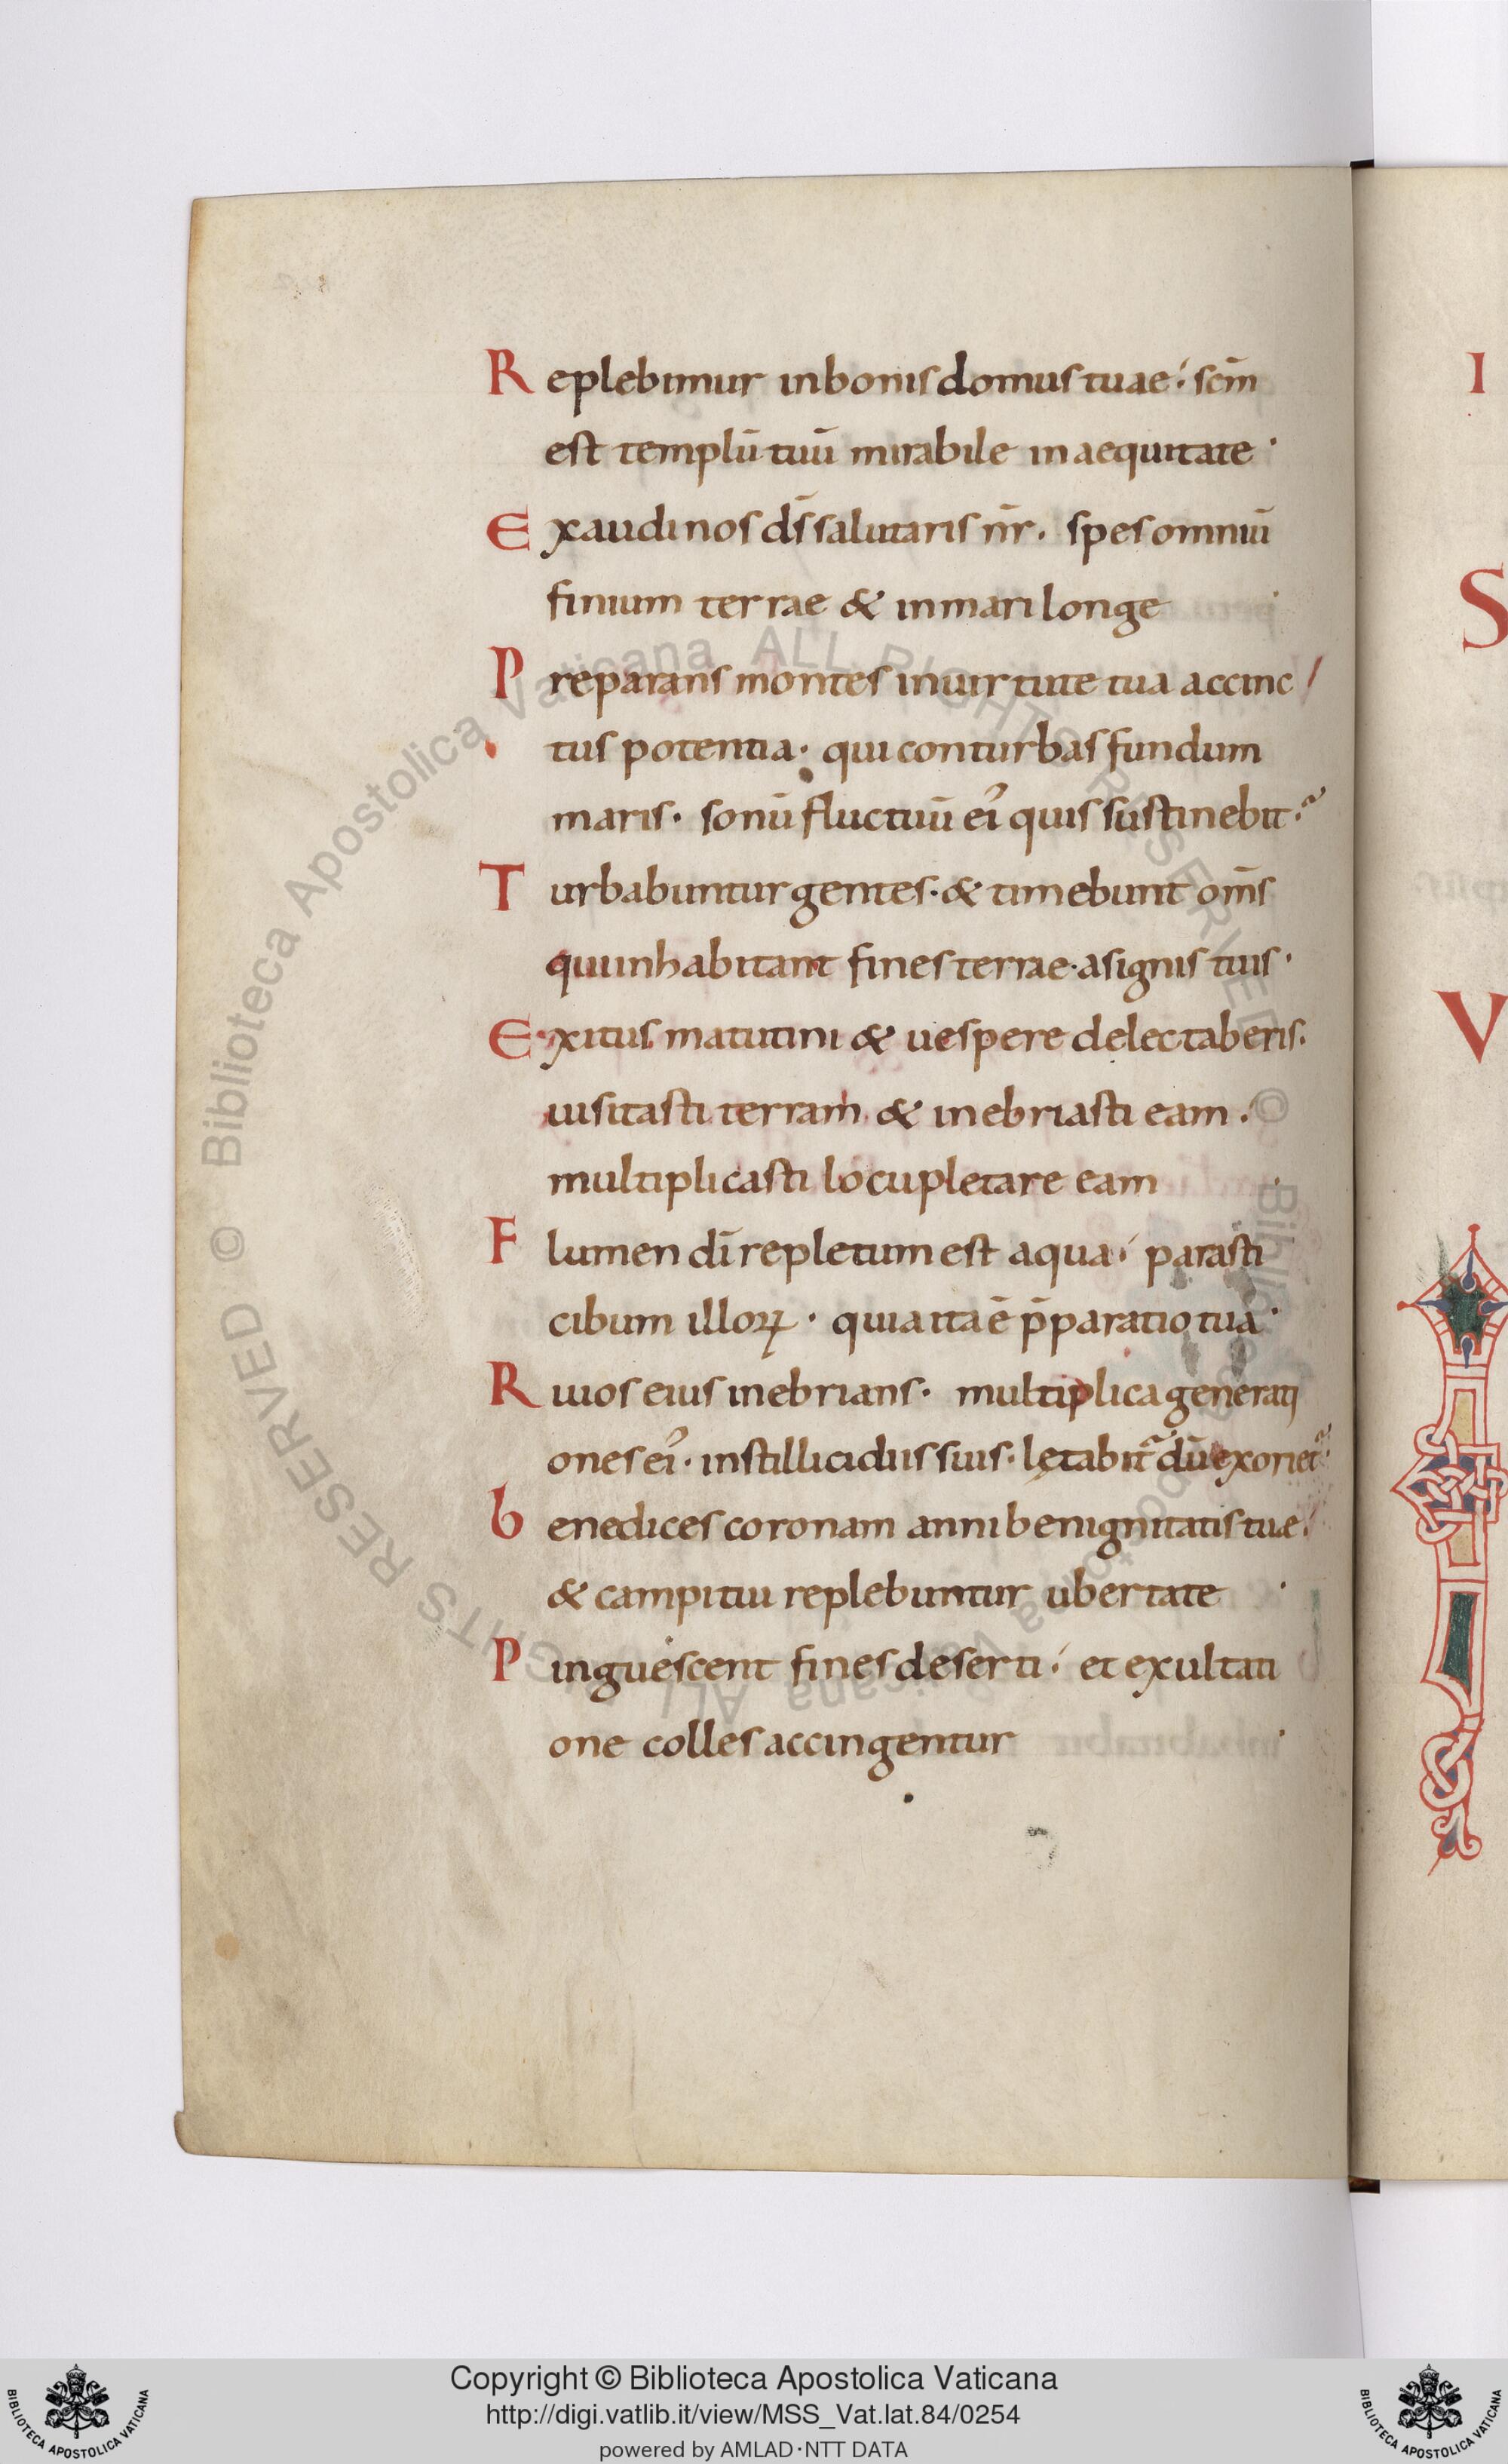 Replebimur in bonis domus tuae; scm̄
est templū tuū mirabile in aequitate ·
Exaudi nos ds̄ salutaris nr̄ · spes omniū
finium terrae & in mari longe ·
Preparans montes in uirtute tua accinc
tus potentia · qui conturbas fundum
maris · sonū fluctuū ei᾽ quis sustinebit·
Turbabuntur gentes · & timebunt om̄s
qui inhabitant fines terrae · a signis tuis ·
Exitus matutini & uespere delectaberis ·
uisitasti terram & inebriasti eam ·
multiplicasti locupletare eam ·
Flumen dī repletum est aqua; parasti
cibum illoꝝ · quia ita ē p̄paratio tua ·
Riuos eius inebrians · multiplica generati
ones ei᾽ · in stillicidiis suis · lętabit᷑ dū exoriet᷑ ·
benedices coronam anni benignitatis tuae
& campi tui replebuntur ubertate ·
Pinguescent fines deserti; et exultati
one colles accingentur ·
I
S
V
Biblioteca Apostolica Vaticana ALL RIGHTS RESERVED ©
Copyright © Biblioteca Apostolica Vaticana
http://digi.vatlib.it/view/MSS_Vat.lat.84/0254
powered by AMLAD·NTT DATA
BIBLIOTECA APOSTOLICA VATICANA
BIBLIOTECA APOSTOLICA VATICANA